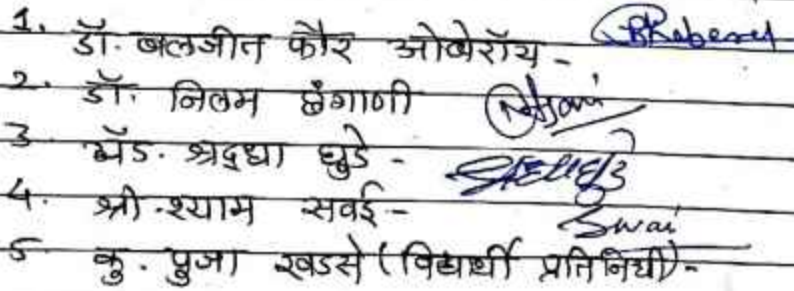 1. डॉ. बलजीत कौर ओबेरॉय -
2. डॉ. निलम छंगाणी
3. ॲड. श्रद्धा घुडे -
4. श्री. श्याम सवई - Swai
5 कु. पुजा खडसे (विद्यार्थी प्रतिनिधी) -